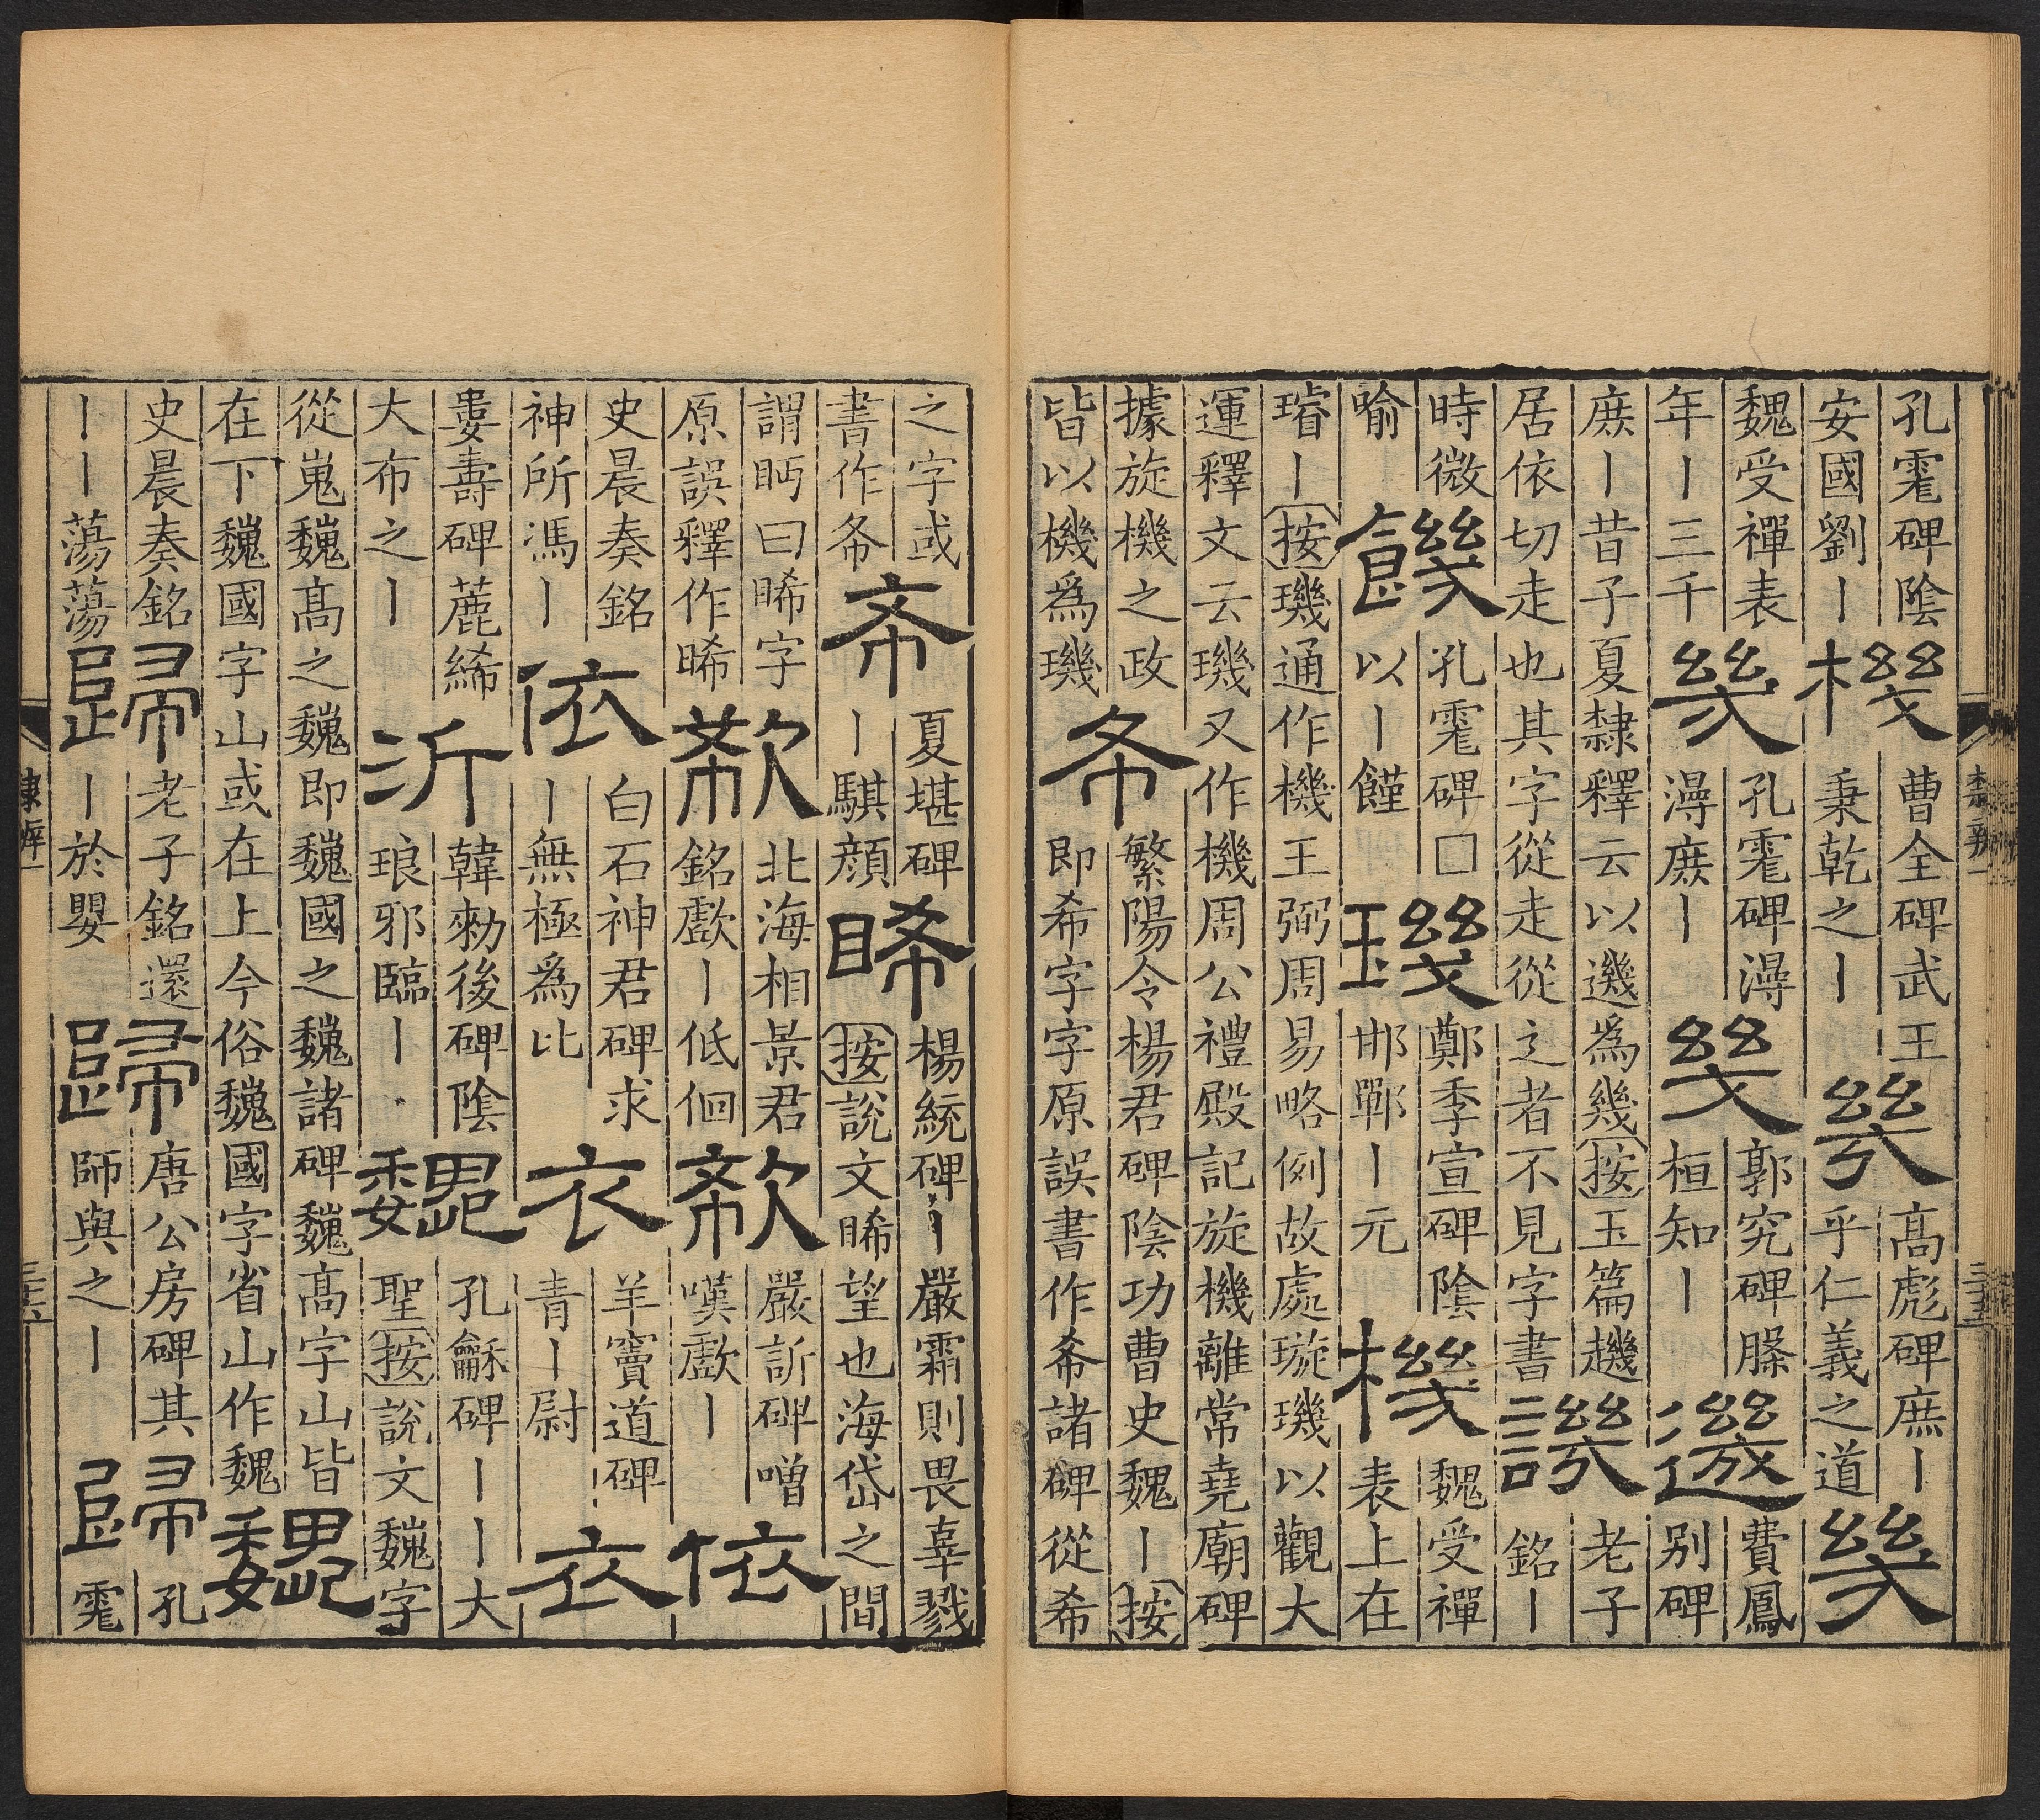 孔碑陰
安國劉丨
機
曹全碑武王
秉乾之丨
幾
高彪碑庶丨
乎仁義之道
幾
魏受禪表
年丨三千
幾
孔碑淂
淂庶丨
幾
郭究碑朘
桓知丨
幾
費鳳
別碑
庶丨昔子夏隸釋云以𨗉為幾按玉篇趭
居依切走也其字從走從辶者不見字書
譏
老子
銘丨
時微
喻
饑
孔碑□
以丨饉
璣
鄭季宣碑陰
邯鄲丨元
機
魏受禪
表上在
璿丨按璣通作機王弼周易略例故處璇璣以觀大
運釋文云璣又作機周公禮殿記旋機離常堯廟碑
據旋機之政
皆以機為璣
希
繁陽令楊君碑陰功曹史魏丨按
即希字字原誤書作希諸碑從希
之字或
書作希
希
夏堪碑
丨騏顏
睎
楊統碑丨嚴霜則畏辜戮
按說文睎望也海岱之間
謂眄曰睎字
原誤釋作晞
欷
北海相景君
銘歔丨低佪
欷
嚴訢碑噌
嘆歔丨
依
史晨奏銘
神所馮丨
依
白石神君碑求
丨無極為比
衣
羊竇道碑
青丨尉
衣
婁壽碑蔍絺
大布之丨
沂
韓勑後碑陰
琅邪臨丨
巍
孔龢碑丨丨大
聖按說文巍字
從嵬巍高之巍即巍國之巍諸碑巍高字山皆
在下巍國字山或在上今俗巍國字省山作魏
魏
史晨奏銘
丨丨蕩蕩
歸
老子銘還
丨於嬰
歸
唐公房碑其
師與之丨
歸
孔
隸辨一
三十五
隸辨一
三十六